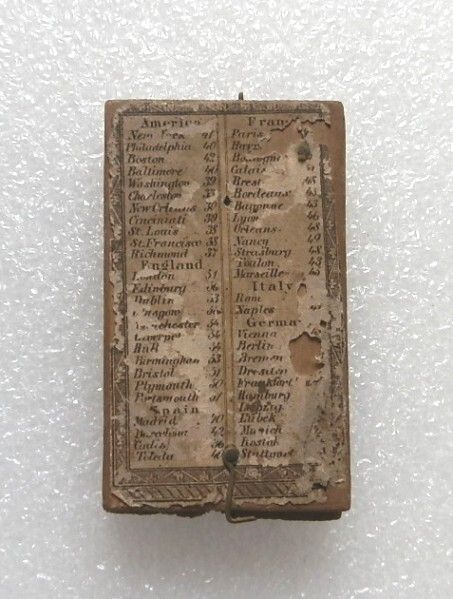 America
New York 41
Philadelphia 40
Boston 42
Baltimore
Washington 39
Charleston 33
New Orleans 30
Cincinati 39
St. Louis 38
St. Francisco 38
Richmond 37
England
London 51
Edinburg 56
Dublin 53
34
34
Hull 54
Birmingham 53
Bristol 51
Plymouth 50
Portsmouth 51
Spain
Madrid 40
42
Cadis 36
Toledo 40
Paris
Calais
Brest 48
Bordeaux 45
Bayonne 43
Lyon 46
Orleans 48
Nancy 49
Strasburg 48
Toulon 43
Marseille
Italy
Rom
Naples
Germa
Vienna
Berlin
Bremen
Dresden
Frankfort
Hamburg
Leipzig
Lubek
Munich
Rostok
Stuttgart